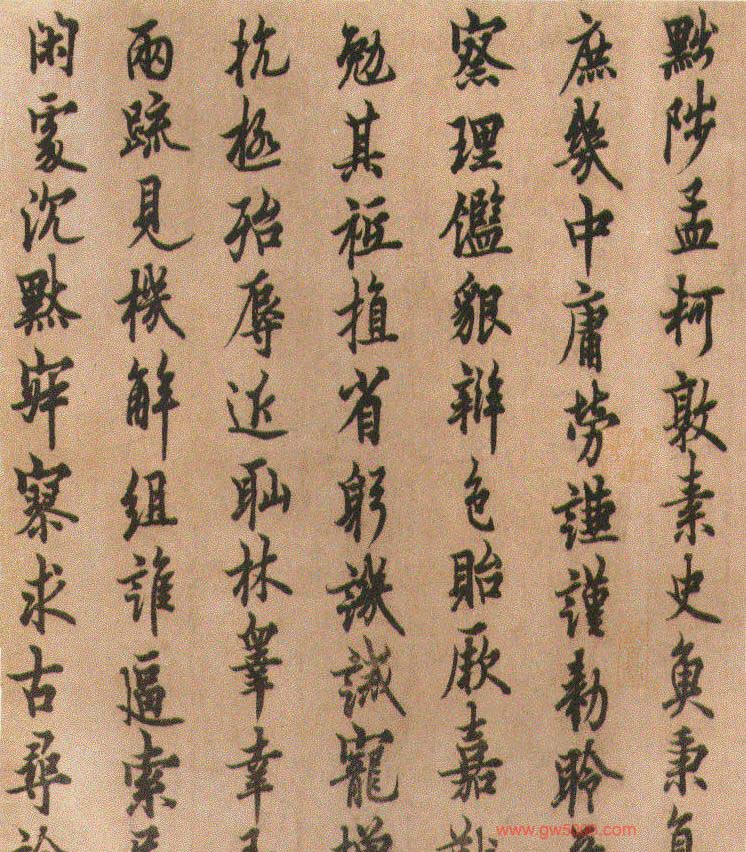 黜陟孟柯敦素史魚秉
庶幾中庸勞謙謹勅聆
察理鑑貌辯色貽厥嘉
勉其祗植省躬譏誡寵
抗極殆辱近耻林皋幸
兩疏見機解組誰逼索
閑處沉默寂寥求古尋
www.gw5000.com